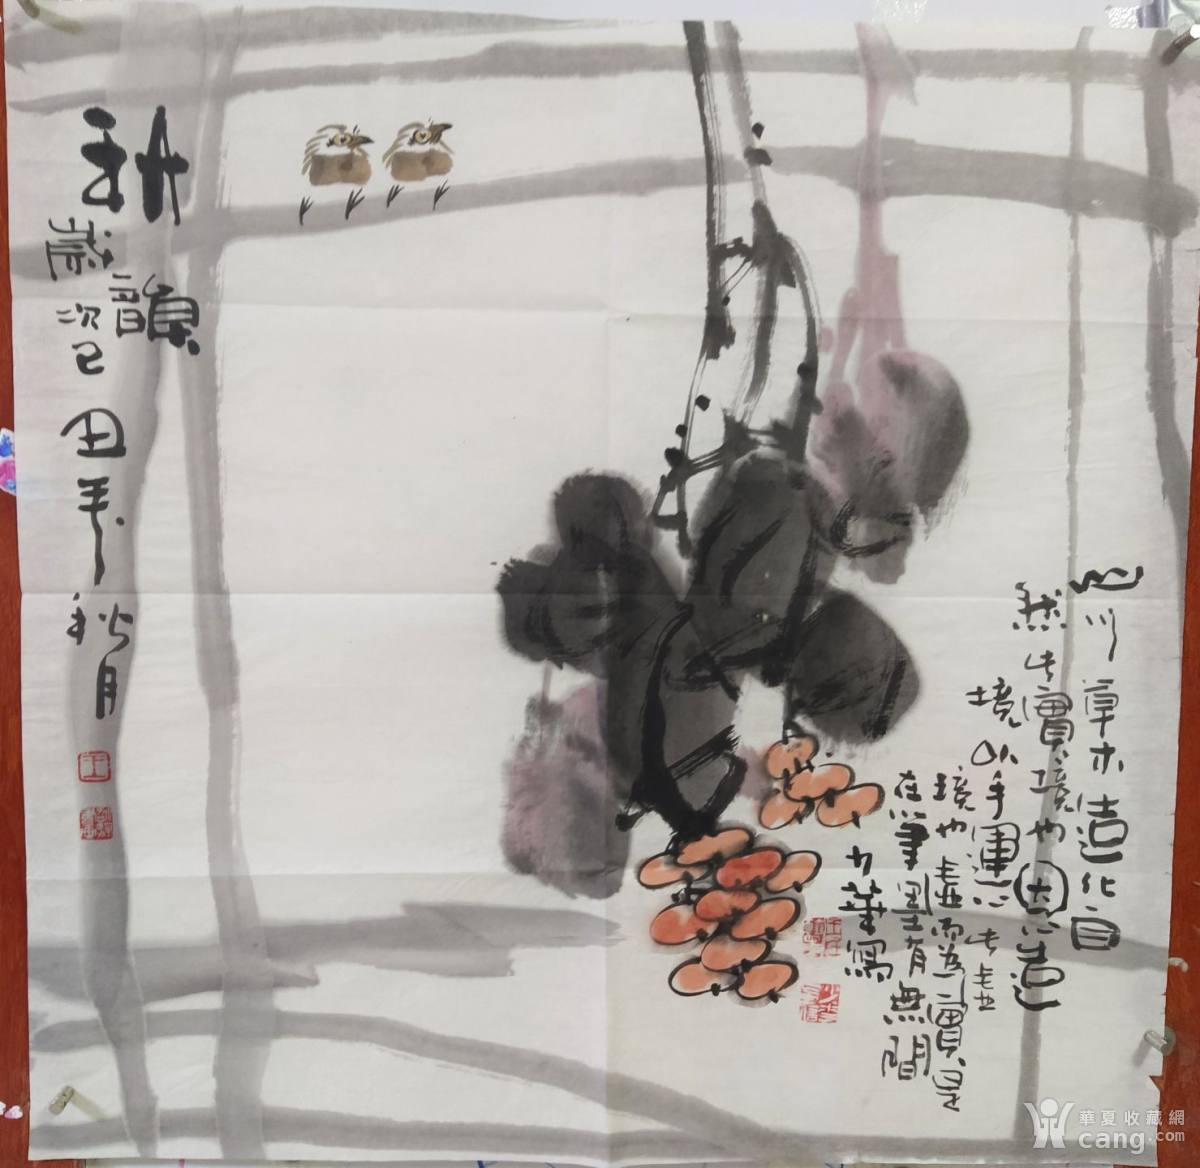 山川草木造化自
然此實境也因心造
境以手運心此虛
境也虛而為實是
在筆墨有無間
華寫
耕韻
歲次己丑年秋月
華夏收藏網
cang.com